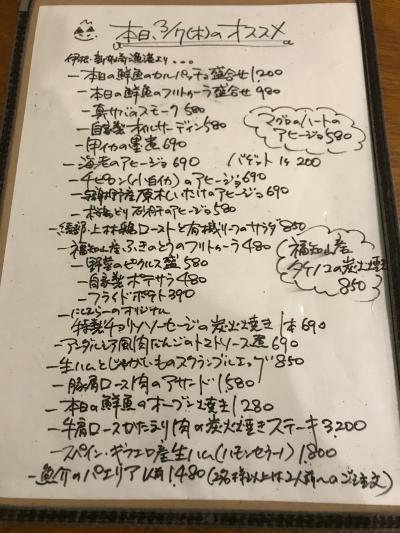 本日、3/7(木)のオススメ
伊根・新井崎漁港より・・・
ー本日の鮮魚のカルパッチョ盛合せ1,200
ー本日の鮮魚のフリトゥーラ盛合せ 980
ー真サバのスモーク 580
ー自家製オイルサーディン 580
マグロのハートの
アヒージョ 580
ー甲イカの墨煮 690
ー海老のアヒージョ 690 バゲット 1ヶ 200
ーチピロン(小白イカ)のアヒージョ 690
ー与謝野産原木しいたけのアヒージョ 690
どり砂肝のアヒージョ 580
ー綾部・上林鶏ローストと有機リーフのサラダ 850
ー福知山産ふきのとうのフリトゥーラ 480
福知山産
タケノコの炭火焼き
850
ー野菜のピクルス盛 580
ー自家製ポテサラ 480
ーフライドポテト 390
のオリジナル
特製チョリソソーセージの炭火焼き 1本 690
ーアンダルシア風肉だんごのトマトソース煮 690
ー生ハムとじゃがいものスクランブルエッグ 850
ー豚肩ロース肉のアサード 1580
ー本日の鮮魚のオーブン焼き 1280
ー牛肩ロースかたまり肉の炭火焼きステーキ 3,200
ースペイン・ギフエロ産生ハム(ハモンセラーノ) 1,800
ー魚介のパエリア 1人前 1480(2名様以上は2人前〜のご注文)